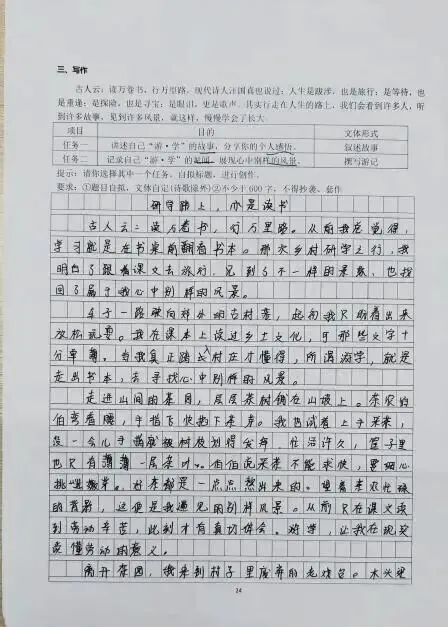 三、写作
古人云：读万卷书，行万里路。现代诗人汪国真也说过：人生是跋涉，也是旅行；是等待，也
是重逢；是探险，也是寻宝；是眼泪，更是歌声。其实行走在人生的路上，我们会看到许多人，听
到许多故事，见到许多风景，就这样，慢慢学会了长大。
项目 目的 文体形式
任务一 讲述自己“游·学”的故事，分享你的个人感悟。 叙述故事
任务二 记录自己“游·学”的见闻，展现心中别样的风景。 撰写游记
提示：请你选择其中一个任务，自拟标题，进行创作。
要求：①题目自拟，文体自定(诗歌除外)②不少于600字，不得抄袭、套作
研学路上，亦是读书
古人云：读万卷书，行万里路。从前我总觉得，
学习就是在书桌前翻看书本。那次乡村研学之行，我
明白了跟着课文去旅行，见到了不一样的景象，也找
回了属于我心中别样的风景。
车子一路驶向郊外的古村落，起初我只盼着出来
放松玩耍。我在课本上读过乡土文化，可那些文字十
分单薄。当我真正踏入村庄才懂得，所谓游学，就是
走出书本，去寻找心中别样的风景。
走进山间的茶园，层层茶树铺在山坡上。茶农伯
伯弯着腰，手指飞快掐下茶芽。我也试着上手采茶，
没一会儿手指就被树枝划得发疼，忙活许久，筐子里
也只有薄薄一层茶叶。伯伯说采茶不能求快，要细心
挑嫩芽。好茶都是一点点熬出来的。望着茶农忙碌
的背影，这便是我遇见的别样风景。从前只在课文读
到劳动辛苦，此刻才有真切体会。游学，让我在现实
读懂劳动的意义。
离开茶园，我来到村子里废弃的老戏台。木头梁
24